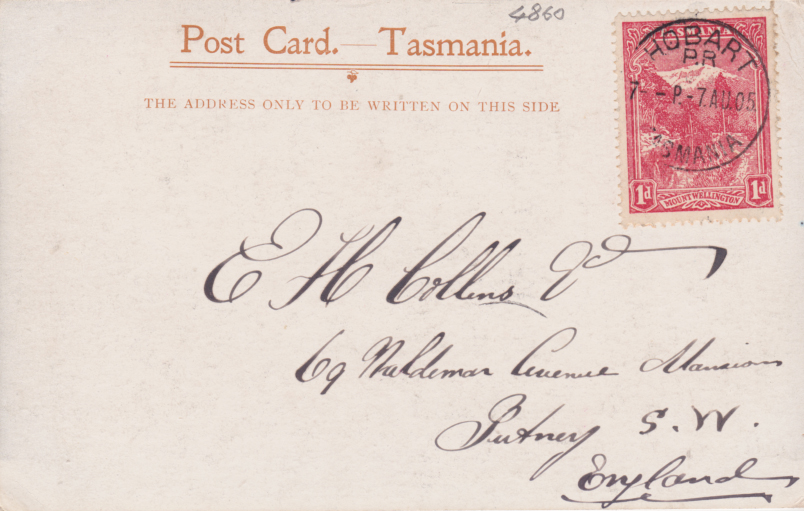 4860
Post Card.—Tasmania.
THE ADDRESS ONLY TO BE WRITTEN ON THIS SIDE
TASMANIA
HOBART
P.R
7 - P - 7.AU.05
TASMANIA
1d MOUNT WELLINGTON 1d
E H Collins
69 Waldemar Avenue Mansions
Putney S.W.
England